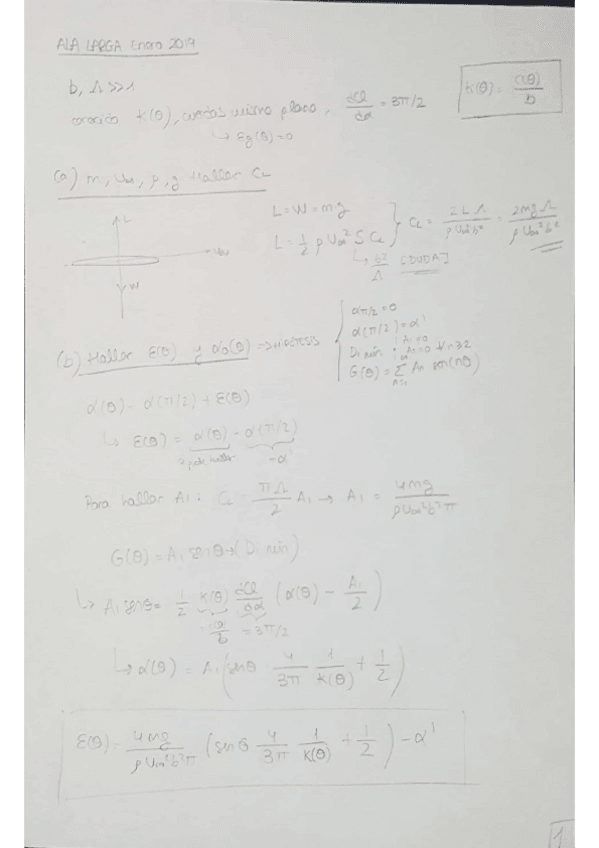 ALA LARGA Enero 2019
b, Λ >>1
conocido K(θ), cuerdas mismo plano, dCl/dα = 3π/2
K(θ) = c(θ)/b
↳ εg(θ)=0
(a) m, U∞, ρ, g Hallar CL
L
U∞
W
L = W = mg
L = 1/2 ρ U∞² S CL
↳ b²/Λ [DUDA]
CL = 2LΛ/ρU∞²b² = 2mgΛ/ρU∞²b²
(b) Hallar ε(θ) y α0(θ) => HIPOTESIS
α(π/2) = α'
Di min
G(θ) = Σ An sen(nθ)
α(θ) = α(π/2) + ε(θ)
↳ ε(θ) = α(θ) - α(π/2)
-α'
Para hallar A1: CL = πΛ/2 A1 → A1 = 4mg/ρU∞²b²π
G(θ) = A1 senθ → (Di min)
↳ A1 senθ = 1/2 K(θ) dCl/dα (α(θ) - A1/2)
= c(θ)/b = 3π/2
↳ α(θ) = A1 (senθ 4/3π 1/K(θ) + 1/2)
ε(θ) = 4mg/ρU∞²b²π (senθ 4/3π 1/K(θ) + 1/2) - α'
1